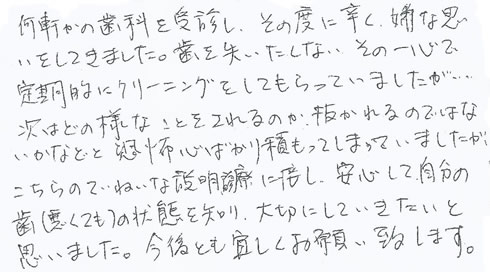 何軒かの歯科を受診し、その度に辛く、嫌な思
いをしてきました。歯を失いたくない その一心で
定期的にクリーニングをしてもらっていましたが…
次はどの様なことをされるのか、抜かれるのではな
いかなどと 恐怖心ばかり積もってしまっていましたが
こちらのていねいな説明診療に信し、安心して、自分の
歯(悪くても)の状態を知り、大切にしていきたいと
思いました。今後とも宜しくお願い致します。